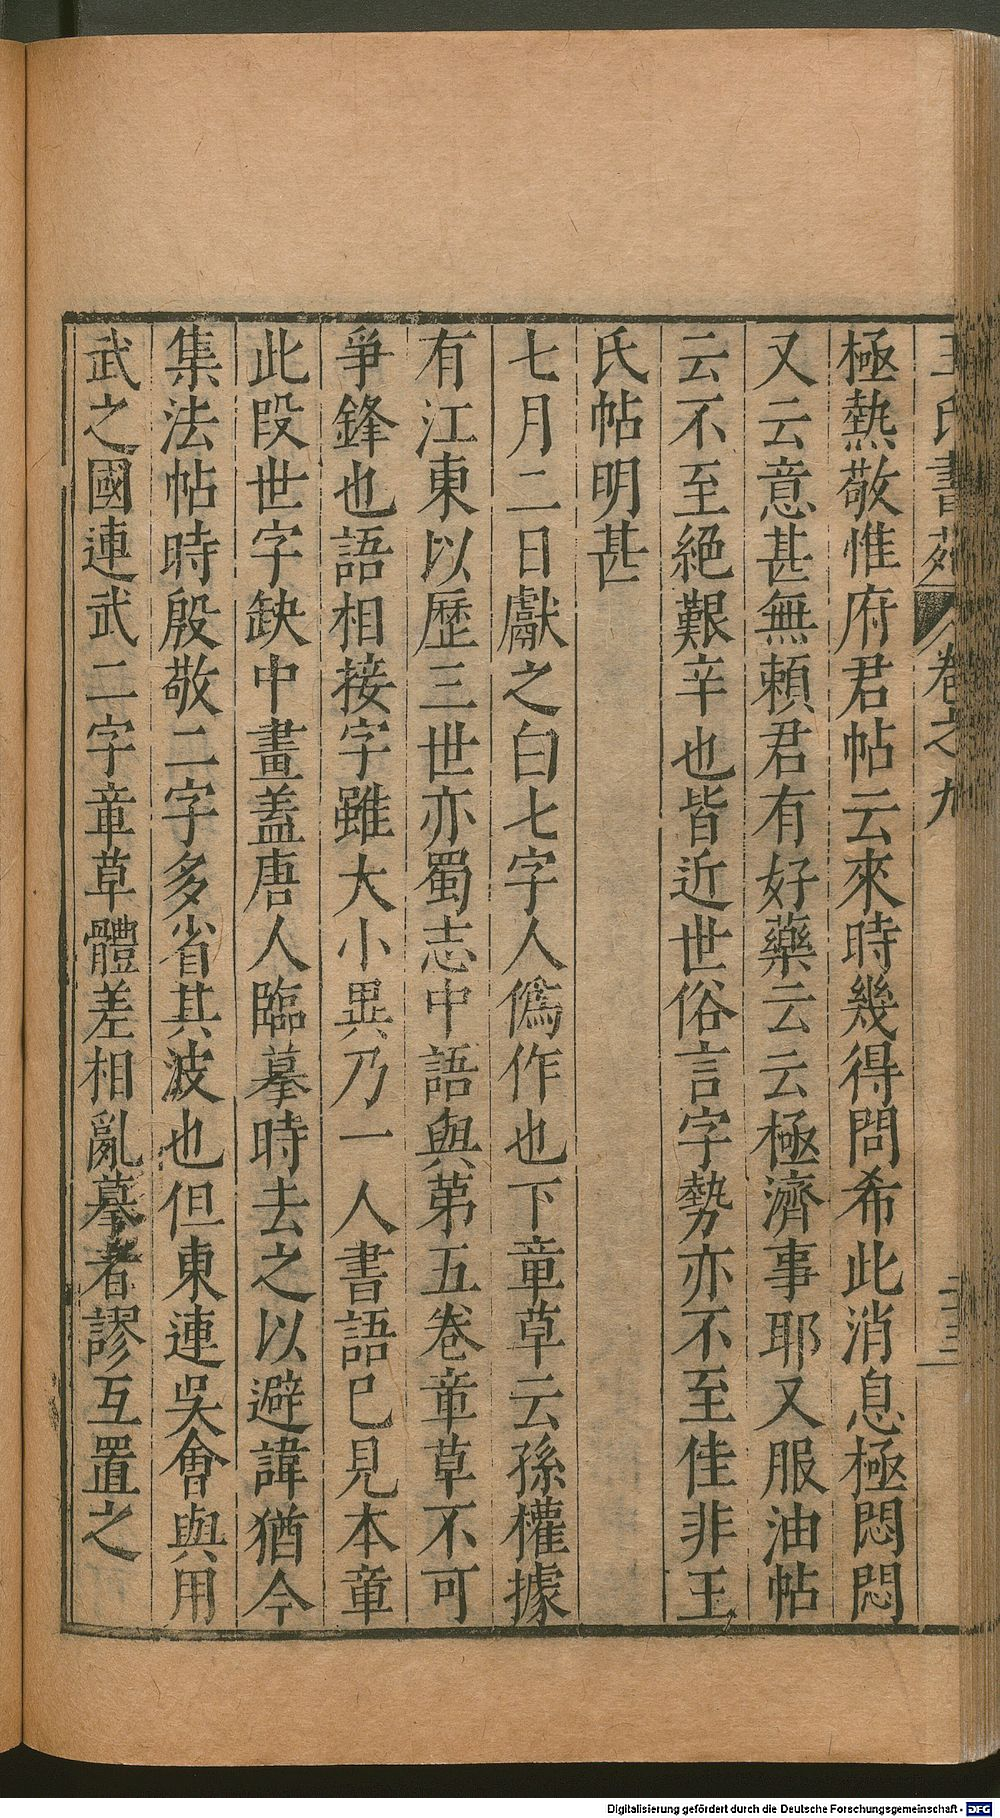 王氏書苑 卷之九 二十三
極熱敬惟府君帖云來時幾得問希此消息極悶悶
又云意甚無賴君有好藥云云極濟事耶又服油帖
云不至絕艱辛也皆近世俗言字勢亦不至佳非王
氏帖明甚
七月二日獻之白七字人僞作也下章草云孫權據
有江東以歷三世亦蜀志中語與第五卷章草不可
爭鋒也語相接字雖大小異乃一人書語已見本章
此段世字缺中畫蓋唐人臨摹時去之以避諱猶今
集法帖時殷敬二字多省其波也但東連吳會與用
武之國連武二字章草體差相亂摹者謬互置之
Digitalisierung gefördert durch die Deutsche Forschungsgemeinschaft - DFG